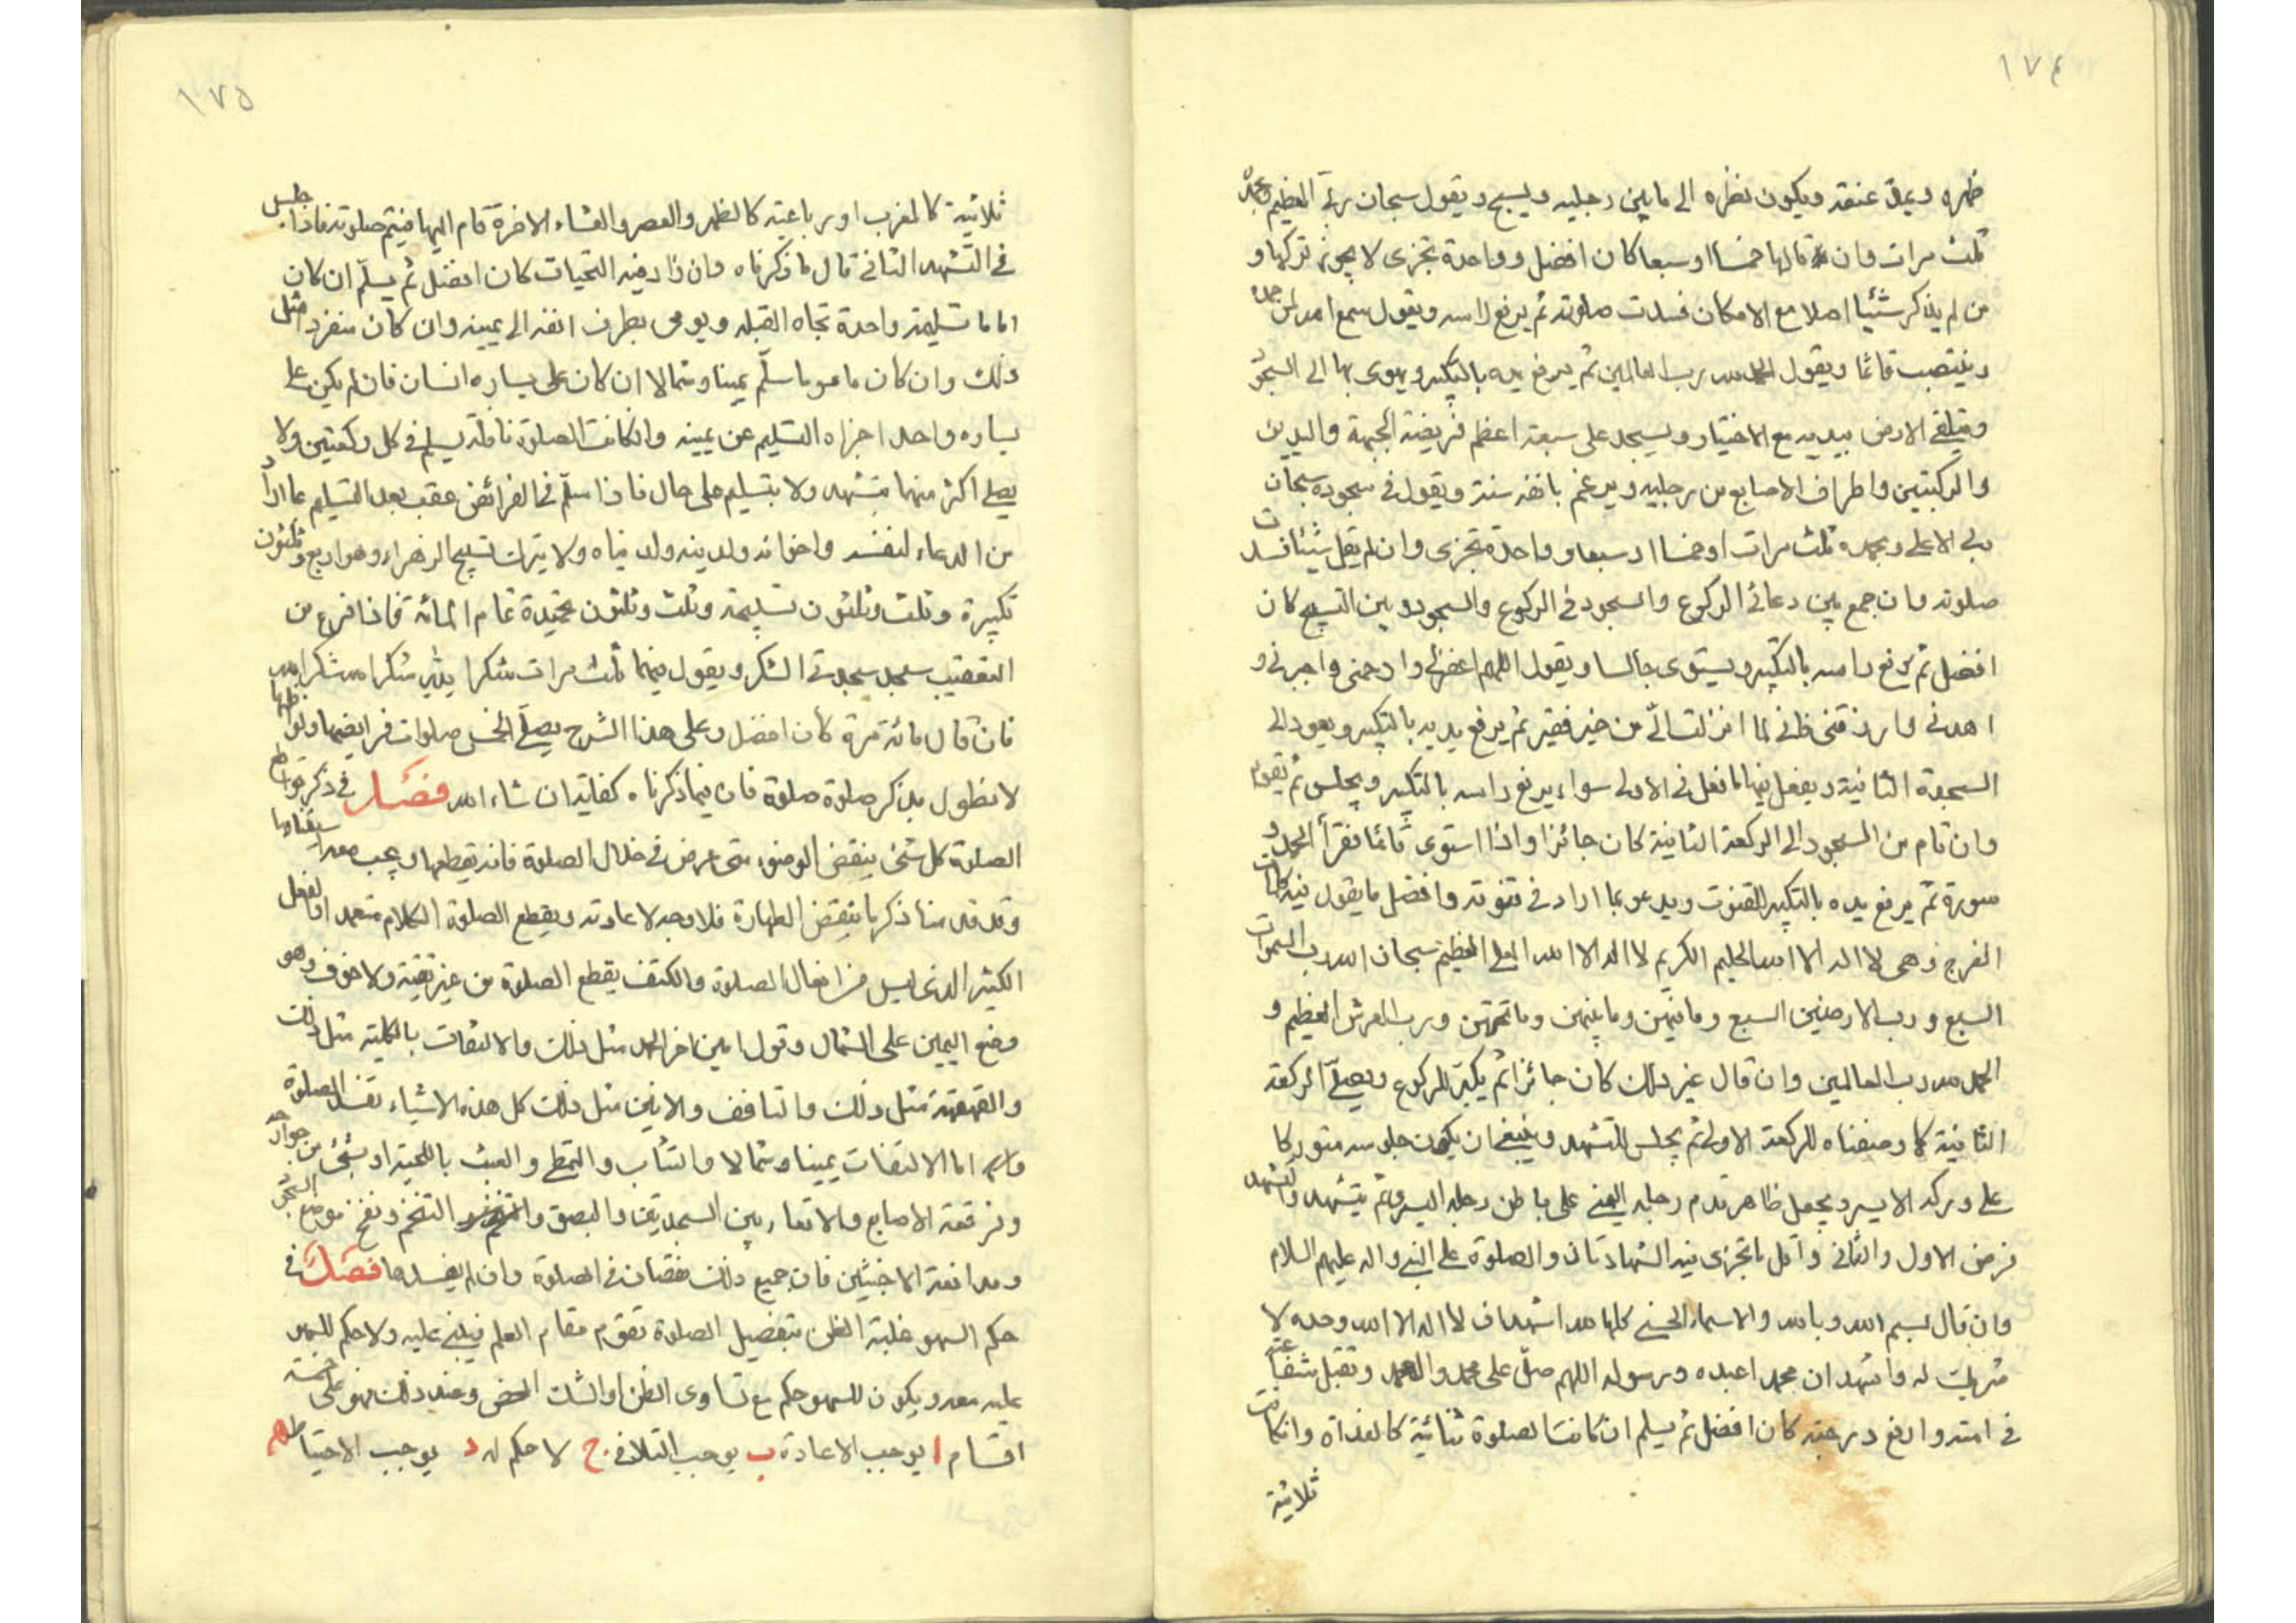 ١٧٤
ظهره ويمد عنقه ويكون نظره الى ما بين رجليه ويسبح ويقول سبحان ربي العظيم وبحمده
ثلث مرات وان قالها خمسا او سبعا كان افضل وواحدة تجزى لا يجوز تركها و
من لم يذكر شئيا اصلا مع الامكان فسدت صلوته ثم يرفع راسه ويقول سمع الله لمن حمده
وينتصب قائما ويقول الحمد لله رب العالمين ثم يرفع يده بالتكبير ويهوى بها الى السجود
ويتلقى الارض بيديه مع الاختيار ويسجد على سبعة اعظم فريضة الجبهة واليدين
والركبتين واطراف الاصابع من رجليه ويرغم بانفه سنة ويقول فى سجوده سبحان
ربى الاعلى وبحمده ثلث مرات او خمسا او سبعا وواحدة تجزى وان لم يقل شيئا فسدت
صلوته وان جمع بين دعائى الركوع والسجود فى الركوع والسجود وبين التسبيح كان
افضل ثم يرفع راسه بالتكبير ويستوى جالسا ويقول اللهم اغفرلى وارحمنى واجبرنى و
اهدنى وارزقنى فانى لما انزلت الىّ من خير فقير ثم يرفع يديه بالتكبير ويعود الى
السجدة الثانية ويفعل فيها ما فعل فى الاولى سواء يرفع راسه بالتكبير ويجلس ثم يقوم
وان قام من السجود الى الركعة الثانية كان جائزا واذا استوى قائما فقرأ الحمد و
سورة ثم يرفع يده بالتكبير للقنوت ويدعو بما اراد فى قنوته وافضل ما يقول فيه كلمات
الفرج وهى لا اله الا الله الحليم الكريم لا اله الا الله العلى العظيم سبحان الله رب السموات
السبع ورب الارضين السبع وما فيهن وما بينهن وما تحتهن ورب العرش العظيم و
الحمد لله رب العالمين وان قال غير ذلك كان جائزا ثم يكبّر للركوع ويصلّى الركعة
الثانية كما وصفناه للركعة الاولى ثم يجلس للتشهد وينبغى ان يكون جلوسه متوركا
على وركه الايسر ويجعل ظاهر قدم رجله اليمنى على باطن رجله اليسرى ثم يتشهد والتشهد
فرض الاول والثانى واقل ما تجزى فيه الشهادتان والصلوة على النبى واله عليهم السلام
وان قال بسم الله وبالله والاسماء الحسنى كلها لله اشهد ان لا اله الا الله وحده لا
شريك له واشهد ان محمدا عبده ورسوله اللهم صلّ على محمد وال محمد وتقبل شفاعته
فى امته وارفع درجته كان افضل ثم يسلم ان كانت الصلوة ثنائية كالغداة وان كانت
ثلاثية
١٧٥
ثلاثية كالمغرب او رباعية كالظهر والعصر والعشاء الاخرة قام اليها فيتم صلوته فاذا جلس
فى التشهد الثانى قال ما ذكرناه وان زاد فيه التحيات كان افضل ثم يسلّم ان كان
اماما تسليمة واحدة تجاه القبلة ويومى بطرف انفه الى يمينه وان كان منفردا مثل
ذلك وان كان ماموما سلّم يمينا وشمالا ان كان على يساره انسان فان لم يكن على
يساره واحد اجزاه التسليم عن يمينه وان كانت الصلوة نافلة يسلم فى كل ركعتين ولا
يصلى اكثر منها بتشهد ولا بتسليم على حال فاذا سلّم فى الفرائض عقب بعد التسليم بما اراد
من الدعاء لنفسه واخوانه ولدينه ولدنياه ولا يترك تسبيح الزهراء وهو اربع وثلثون
تكبيرة وثلث وثلثون تسبيحة وثلث وثلثون تحميدة تمام المائة فاذا فرغ من
التعقيب سجد سجدتى الشكر ويقول فيهما ثلث مرات شكرا لله شكرا لله شكرا لله
فان قال مائة مرة كان افضل وعلى هذا الشرح يصلّى الخمس صلوات فرايضها ونوافلها
لا نطول بذكر صلوة صلوة فان فيما ذكرناه كفاية ان شاء الله فصل فى ذكر قواطع
الصلوة كل شئ ينقض الوضوء متى عرض فى خلال الصلوة فانه يقطعها ويجب معه استينافها
وقد قدمنا ذكر ما ينقض الطهارة فلا وجه لاعادته ويقطع الصلوة الكلام متعمدا والفعل
الكثير الذى ليس من افعال الصلوة والكتف يقطع الصلوة من غير تقية ولا خوف وهو
وضع اليمين على الشمال وقول امين اخر الحمد مثل ذلك والالتفات بالكلية مثل ذلك
والقهقهة مثل ذلك والتافف والانين مثل ذلك كل هذه الاشياء تفسد الصلوة
واما الالتفات يمينا وشمالا والتثأب والتمطى والعبث باللحية او بشئ من جوارحه
وفرقعة الاصابع والاقعاء بين السجدتين والبصق والتنخم ونفخ موضع السجود
ومدافعة الاخبثين فان جميع ذلك نقصان فى الصلوة وان لم يفسدها فصل فى
حكم السهو غلبة الظن بتفصيل الصلوة تقوم مقام العلم فيبنى عليه ولا حكم للسهو
عليه معه ويكون للسهو حكم مع تساوى الظن او الشك المحض وعند ذلك فهو على خمسة
اقسام ا يوجب الاعادة ب يوجب التلافى ج لا حكم له د يوجب الاحتياط ه